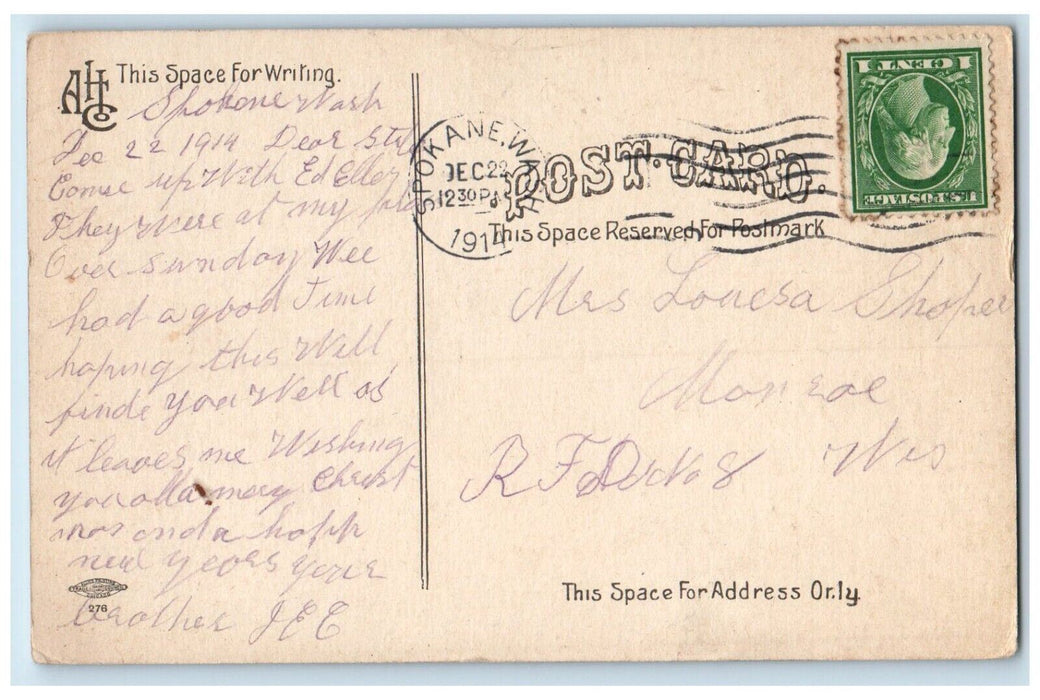 AHC Co
This Space For Writing.
Spokane Wash
Dec 22 1914 Dear
Come up With Ed
They Were at my
Over sunday Wee
had a good Time
hoping this Will
finde you Well as
it leaves me Wishing
you all a mery Christ
mas and a happ
new years your
brother JEE
276
SPOKANE, WASH
DEC 22
12 30 PM
1914
POST·CARD.
This Space Reserved For Postmark
U.S. POSTAGE
1 CENT 1
Mrs Louesa
Monroe
Wis
R F D No 8
This Space For Address Only